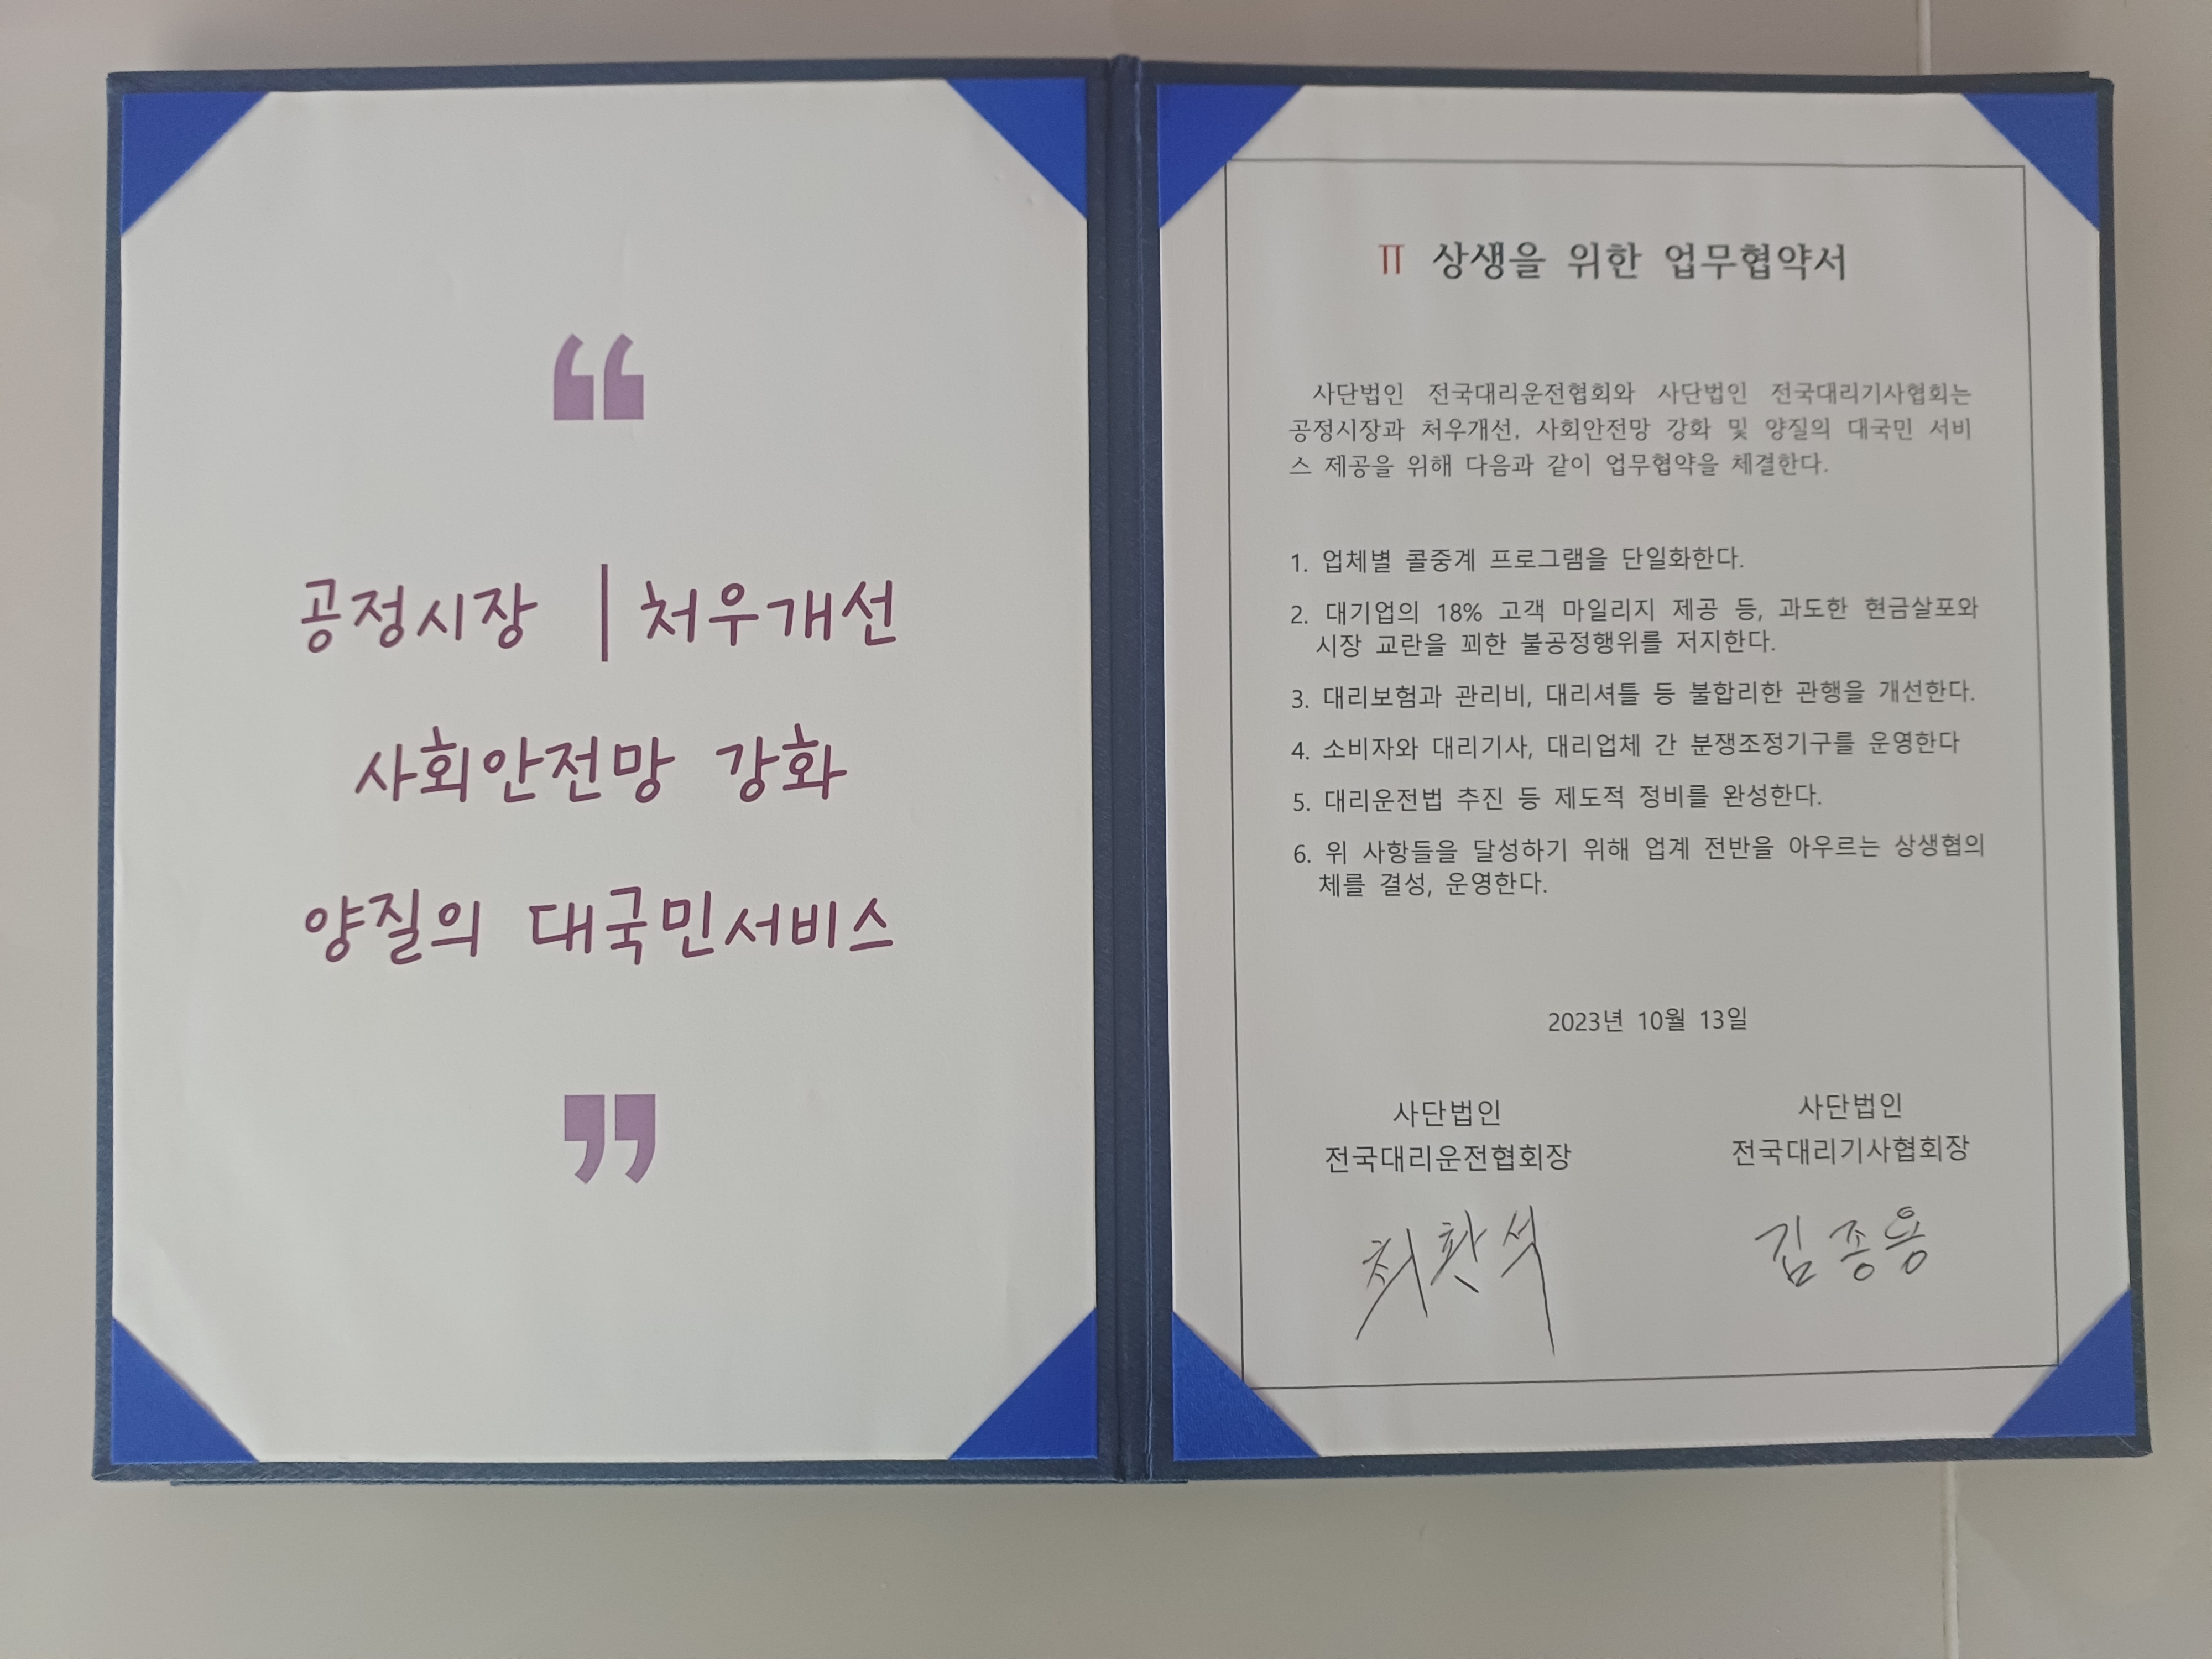 “
공정시장 | 처우개선
사회안전망 강화
양질의 대국민서비스
”
상생을 위한 업무협약서
사단법인 전국대리운전협회와 사단법인 전국대리기사협회는
공정시장과 처우개선, 사회안전망 강화 및 양질의 대국민 서비
스 제공을 위해 다음과 같이 업무협약을 체결한다.
1. 업체별 콜중계 프로그램을 단일화한다.
2. 대기업의 18% 고객 마일리지 제공 등, 과도한 현금살포와
시장 교란을 꾀한 불공정행위를 저지한다.
3. 대리보험과 관리비, 대리셔틀 등 불합리한 관행을 개선한다.
4. 소비자와 대리기사, 대리업체 간 분쟁조정기구를 운영한다
5. 대리운전법 추진 등 제도적 정비를 완성한다.
6. 위 사항들을 달성하기 위해 업계 전반을 아우르는 상생협의
체를 결성, 운영한다.
2023년 10월 13일
사단법인
전국대리운전협회장
최환석
사단법인
전국대리기사협회장
김종용